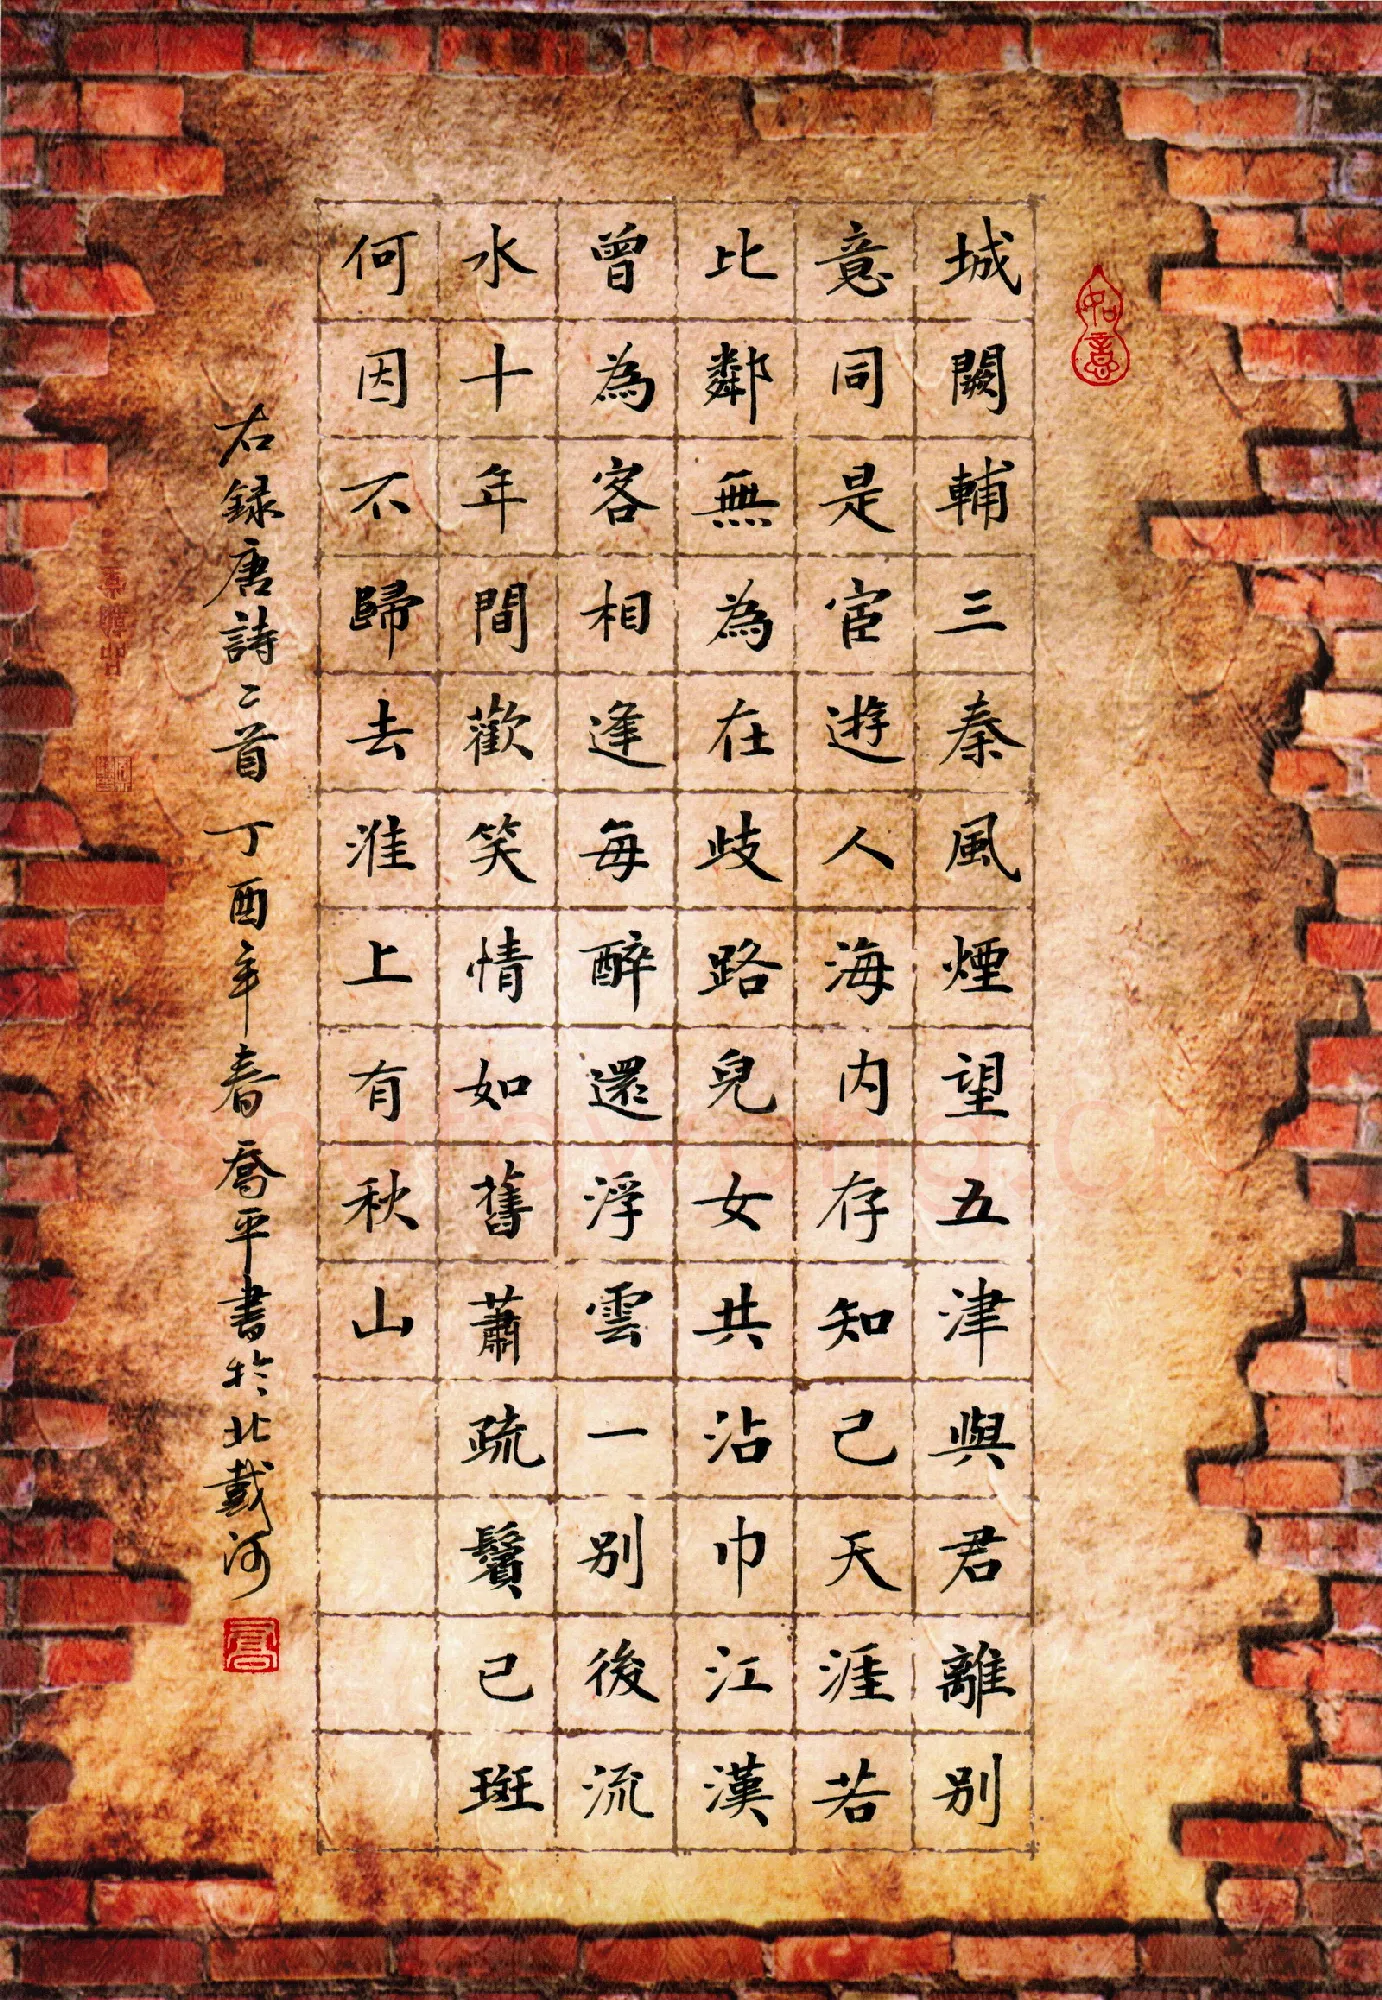 如意
城闕輔三秦風煙望五津與君離別
意同是宦遊人海内存知己天涯若
比鄰無為在歧路兒女共沾巾江漢
曾為客相逢每醉還浮雲一別後流
水十年間歡笑情如舊蕭疏鬢已斑
何因不歸去淮上有秋山
右録唐詩二首 丁酉年春喬平書於北戴河